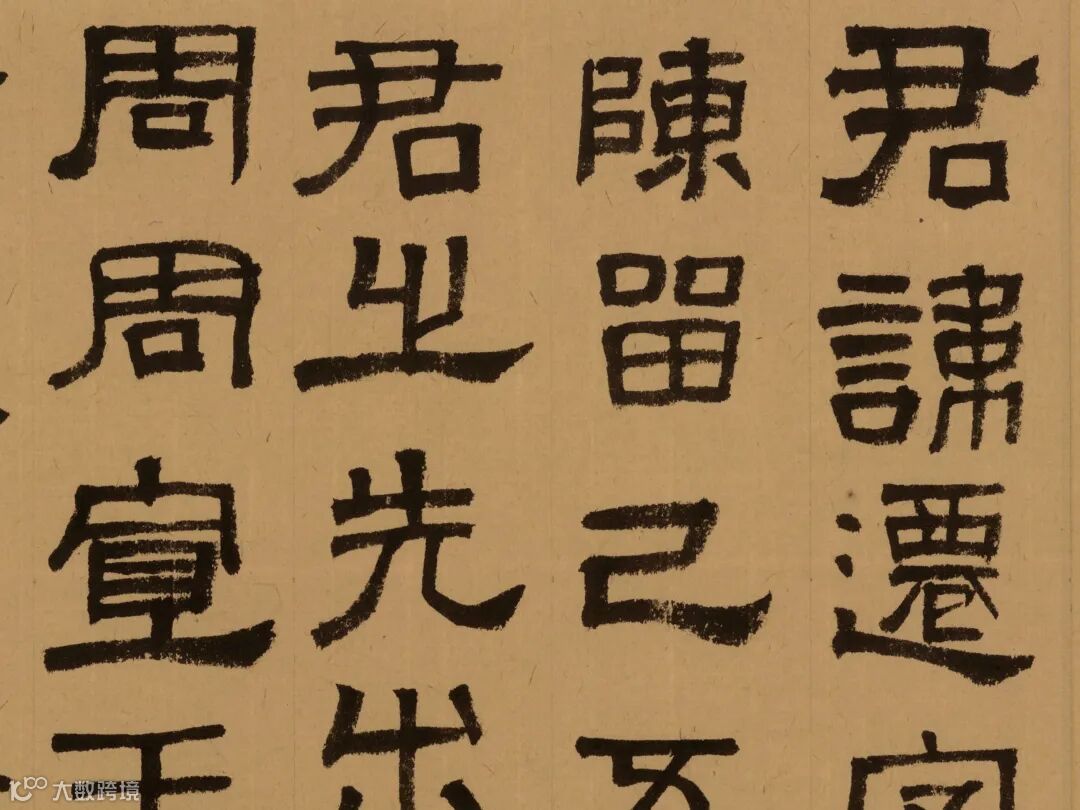 君諱遷字
陳留己吾
君之先出
周周宣王
大数跨境